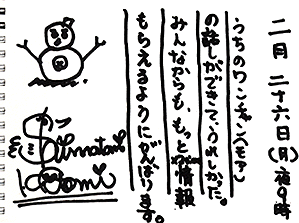 二月二十六日(月)夜9時
うちのワンチャン(モア)
の話しができて、うれしかた。
みんなからも、もっと情報
もらえるようにがんばります。